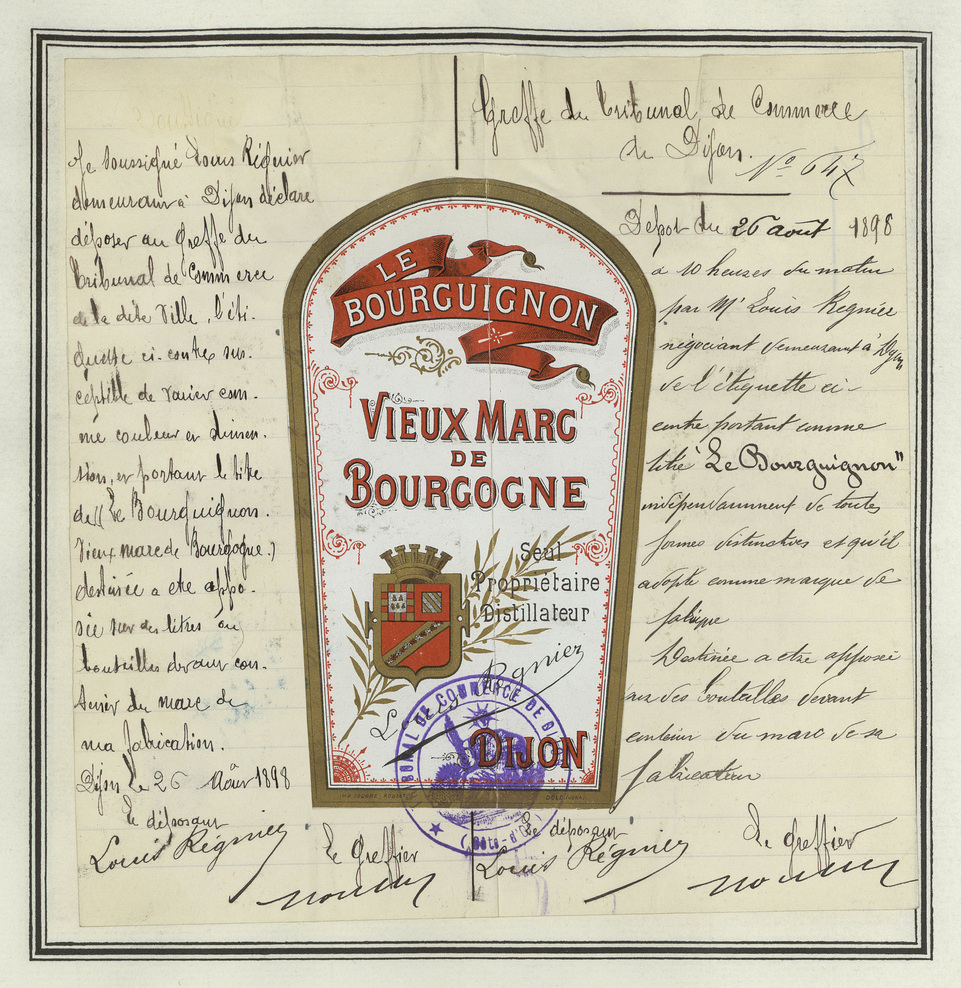 Je soussigné Louis Régnier
demeurant à Dijon déclare
déposer au Greffe du
Tribunal de Commerce
de la dite Ville, l'éti-
quette ci-contre sus-
ceptible de varier com-
me couleur et dimen-
sion, et portant le titre
de (( Le Bourguignon.
Vieux marc de Bourgogne.)
destinée a etre appo-
sée sur des litres ou
bouteilles devant con-
tenir du marc de
ma fabrication.
Dijon le 26 Août 1898
Le déposant
Louis Régnier
Le Greffier
Greffe du Tribunal de Commerce
de Dijon.
No 647
Dépot du 26 août 1898
a 10 heures du matin
par Mr Louis Regnier
négociant demeurant à Dijon
de l'étiquette ci-
contre portant comme
titre "Le Bourguignon"
indépendamment de toutes
formes distinctives et qu'il
adopte comme marque de
fabrique
Destinée a etre apposée
sur des bouteilles devant
contenir du marc de sa
fabrication
Le déposant
Louis Régnier
Le Greffier
LE
BOURGUIGNON
VIEUX MARC
DE
BOURGOGNE
Seul
Propriétaire
Distillateur
Louis Régnier
DIJON
TRIBUNAL DE COMMERCE DE DIJON
(Côte-d'Or)